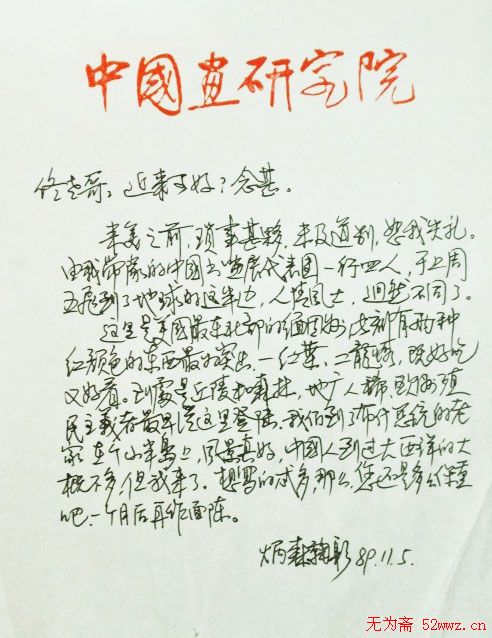 中國画研究院
佟老哥:近来可好?念甚。
来美之前,琐事甚夥,未及道别,恕我失礼。
由我带队的中国画发展代表团一行四人,于上周
五飞到了地球的这半边,人情风土,迥然不同了。
这里是美国最东北部的缅因州,此刻有两种
红颜色的东西最为突出,一红叶,二龙虾,既好吃
又好看。到处是丘陵和森林,地广人稀,欧洲殖
民主义者最早从这里登陆,我们到了布什总统的老
家,在一个山半岛上,风景真好,中国人到过大西洋的大
概不多,但我来了。想写的甚多,那么,您还是多多保重
吧,一个月后再作面陈。
炳森 89.11.5.
无为斋 52wwz.cn